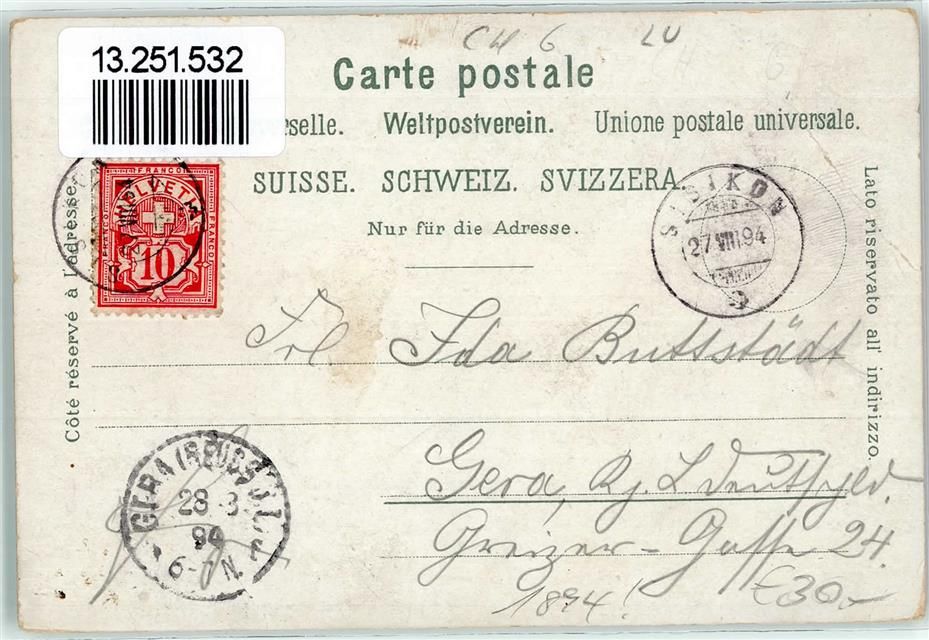 13.251.532
CH 6 LU
Carte postale
erselle. Weltpostverein. Unione postale universale.
SUISSE. SCHWEIZ. SVIZZERA.
Nur für die Adresse.
Côté réservé à l'adresse.
Lato riservato all' indirizzo.
FRANCO
HELVETIA
FRANCO FRANCO
10
SISIKON
27.VIII.94
Frl. Ida Buttstädt
Gera, Rj. L Deutschld.
Greizer-Gasse 24
GERA (REUSS) J.L.
28 8
94
6-7N
1894! €30.-